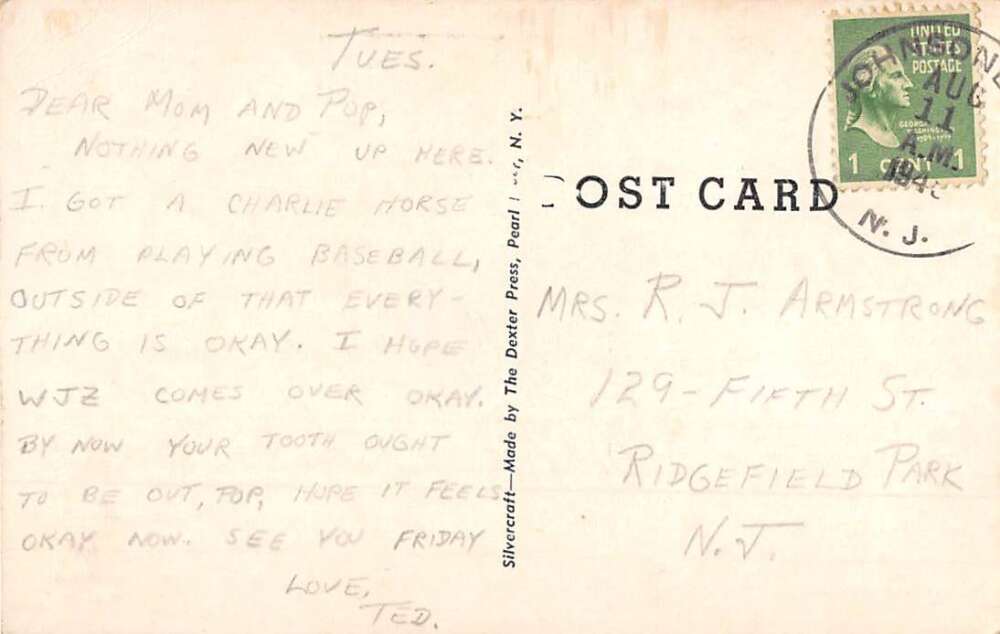 TUES.
DEAR MOM AND POP,
NOTHING NEW UP HERE.
I GOT A CHARLIE HORSE
FROM PLAYING BASEBALL,
OUTSIDE OF THAT EVERY-
THING IS OKAY. I HOPE
WJZ COMES OVER OKAY.
BY NOW YOUR TOOTH OUGHT
TO BE OUT, POP, HOPE IT FEELS
OKAY NOW. SEE YOU FRIDAY
LOVE,
TED.
Silvercraft—Made by The Dexter Press, Pearl N. Y.
POST CARD
UNITED
STATES
POSTAGE
GEORGE
WASHINGTON
1 CENT 1
AUG
11
A.M.
N. J.
MRS. R. J. ARMSTRONG
129-FIFTH ST.
RIDGEFIELD PARK
N.J.